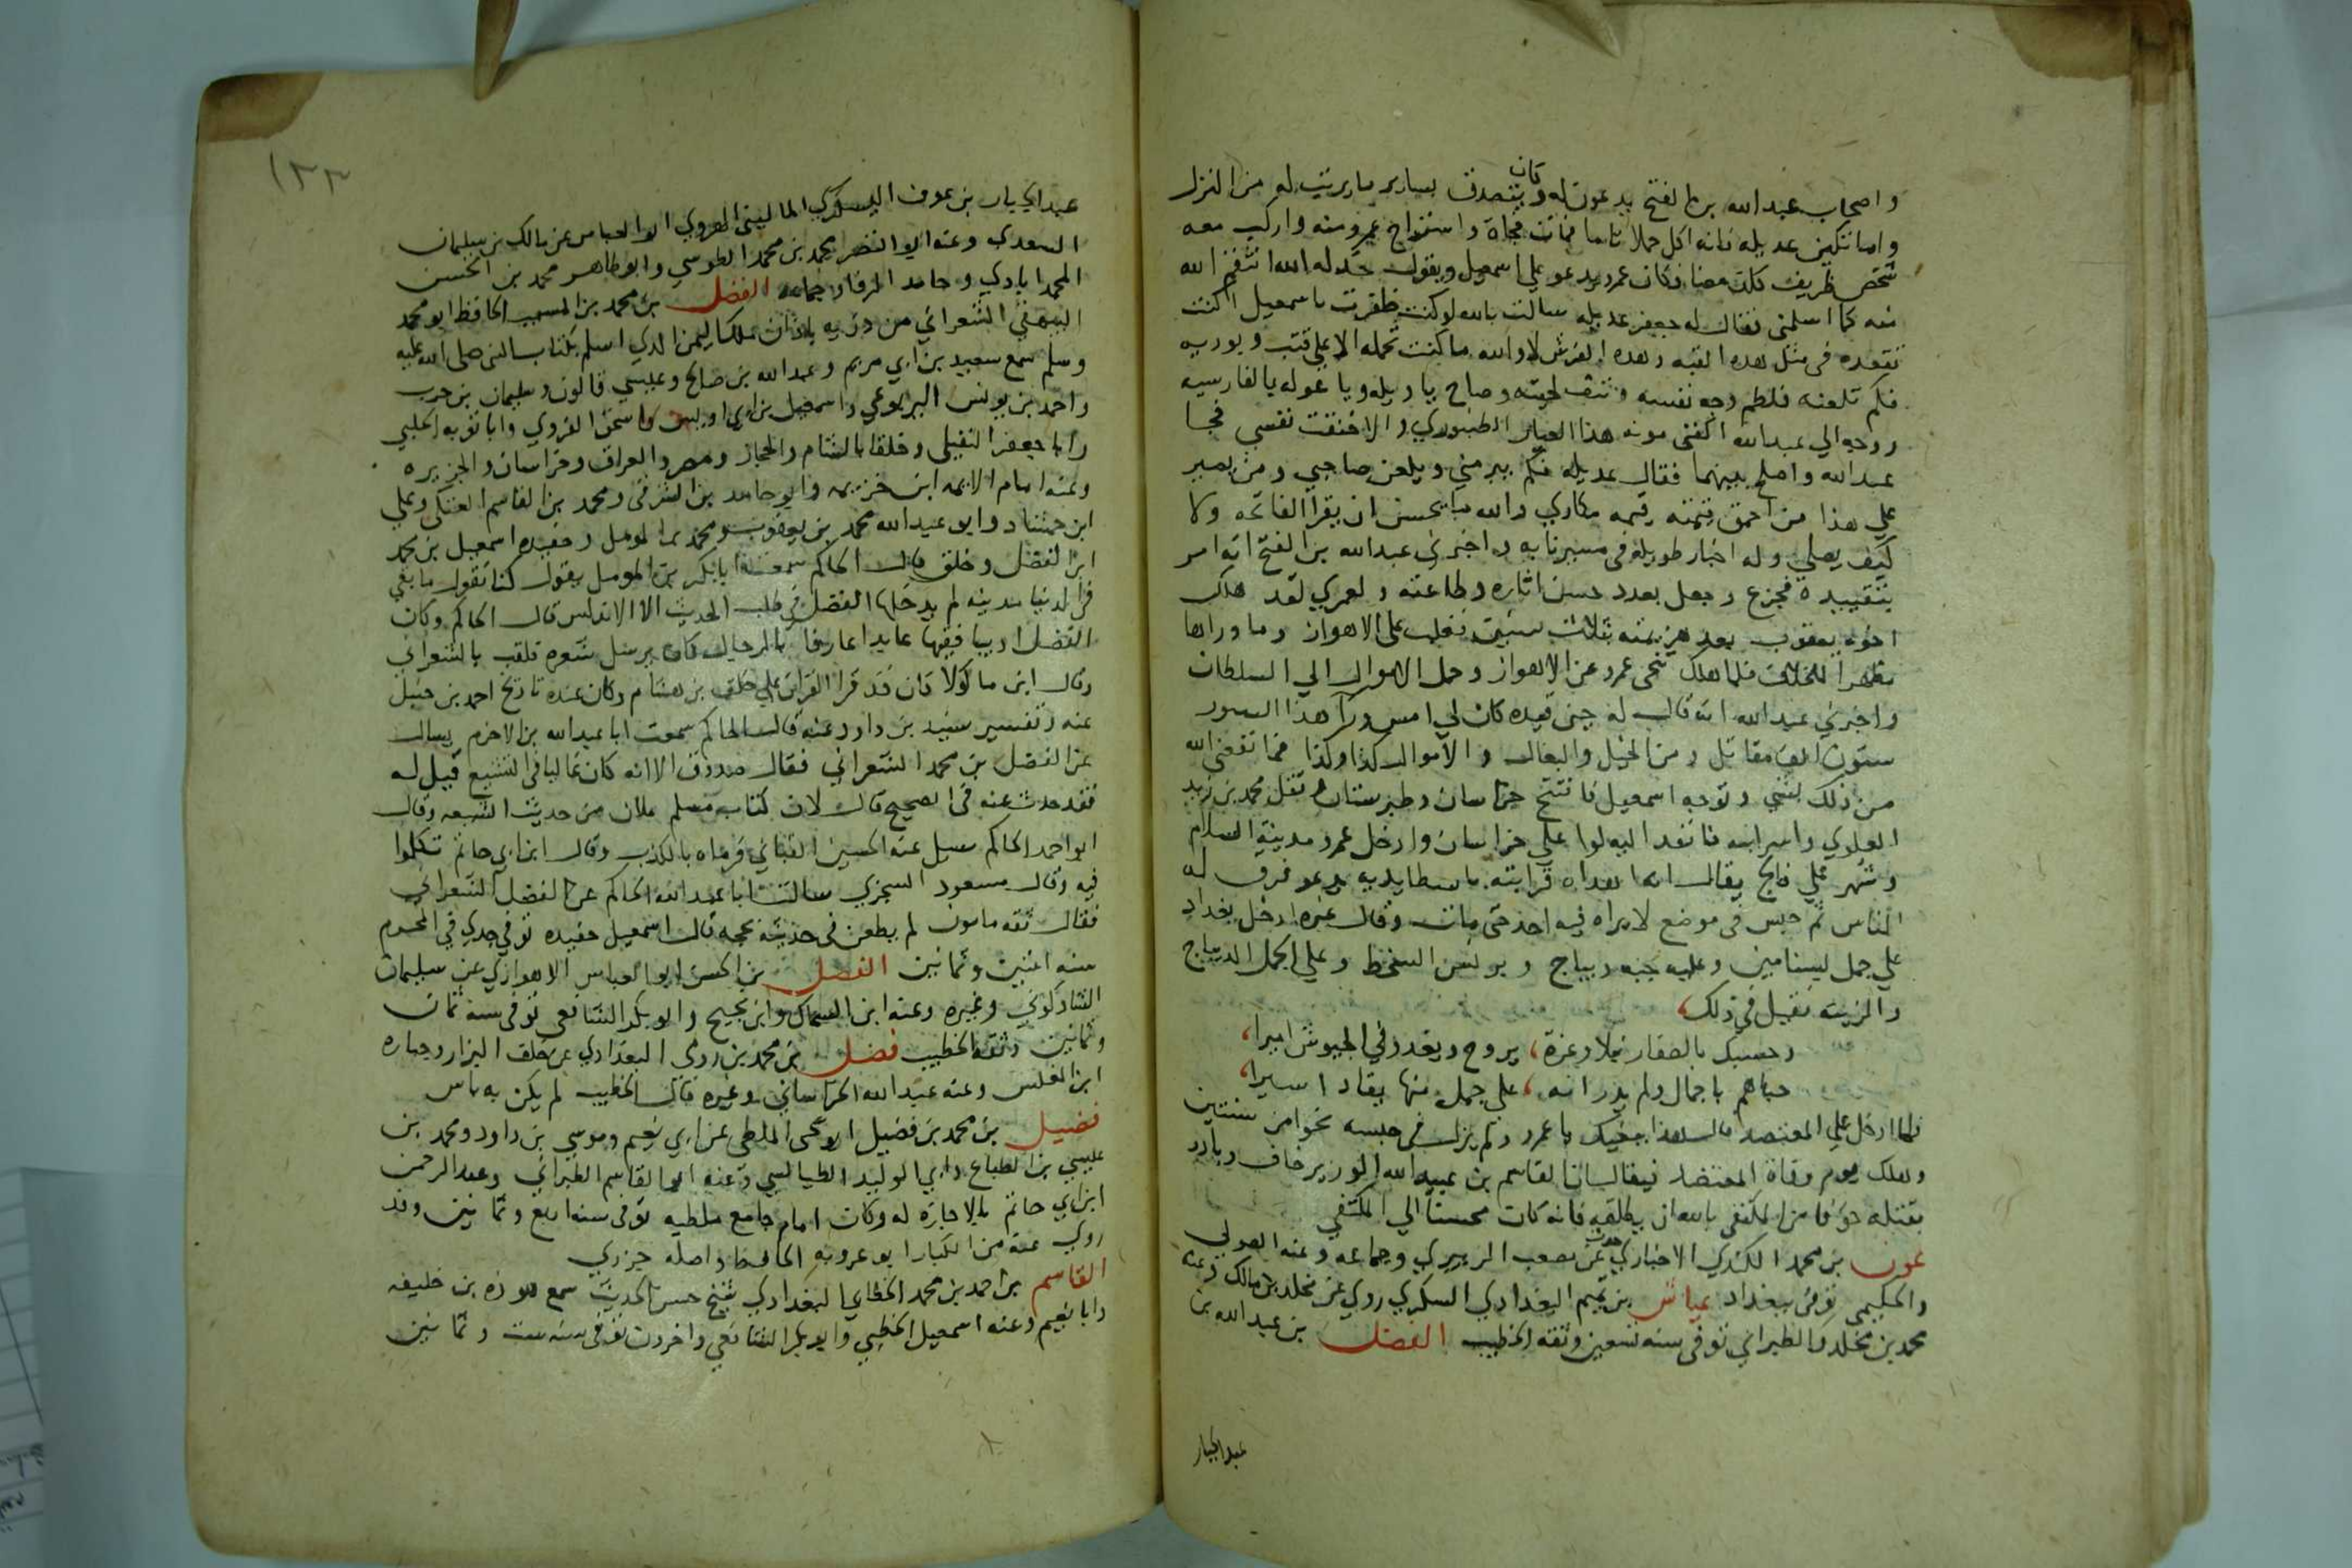 واصحاب عبد الله بن الفتح يدعون له وكان يتصدق بساير ما يرتب له من النزل
واما تكين عديله فانه اكل حملا تاما فمات فجاة واستراح عمرو منه واركب معه
شخص ظريف كلت معنا فكان عمرو يدعو على اسمعيل ويقول خذله الله انتقم الله
منه كما اسلمني فقال له جعفر عديله سالت بالله لو كنت ظفرت باسمعيل اكنت
تقعده في مثل هذه القبه وهذه الفرش لا والله ما كنت تحمله الا على قتب وبوريه
فلم تلعنه فلطم وجه نفسه ونتف لحيته وصاح يا ويله ويا عوله بالفارسيه
ووجه الي عبد الله اكفني مونه هذا العيار الطنبوري والا خنقت نفسي فجا
عبد الله واصلح بينهما فقال عديله فلم يبرمني ويلعن صاحبي ومن يصبر
علي هذا من احمق قيمته قيمه مكاري والله ما يحسن ان يقرا الفاتحه ولا
كيف يصلي وله اخبار طويله في مسيرنا به واخبرني عبد الله بن الفتح انه امر
بتقييده فجزع وجعل يعدد حسن اثاره وطاعته ولعمري لقد هلك
اخوه يعقوب بعد هزيمته بثلاث سنين فغلب على الاهواز وما وراها
مظهرا للخلاف فلما هلك تنحى عمرو عن الاهواز وحمل الاموال الي السلطان
واخبرني عبد الله انه قال له حين قيده كان لي امس ورآ هذا السور
ستون الف مقاتل ومن الخيل والبغال والاموال كذا وكذا فما نفعني الله
من ذلك بشي وتوجه اسمعيل فافتتح خراسان وطبرستان وقتل محمد بن زيد
العلوي واسر ابنه فانفد اليه لوا علي خراسان وادخل عمرو مدينة السلام
وشهر علي فالج يقال انه اهداه قرابته باسطا يديه يدعو فرق له
الناس ثم حبس في موضع لا يراه فيه احد حتى مات وقال غيره ادخل بغداد
علي جمل لسنامين وعليه جبه ديباج وبرنس السخط وعلي الجمل الديباج
والزينه فقيل في ذلك،
وحسبك بالصفار نبلا وعزة، يروح ويغدو في الجيوش اميرا،
حباهم باجمال ولم يدر انه، علي جمل منها يقاد اسيرا،
فلما ادخل علي المعتضد قال هذا ببغيك يا عمرو ولم يزل في حبسه نحوا من سنتين
وهلك يوم وفاة المعتضد فيقال ان القاسم بن عبيد الله الوزير خاف وبادر
بقتله خوفا من المكتفي بالله ان يطلقه فانه كان محسنا الي المكتفي
عون بن محمد الكندي الاخباري حدث عن مصعب الزبيري وجماعه وعنه الصولي
والحكيمي توفي ببغداد عياش بن تميم البغدادي السكري روي عن مخلد بن مالك وعنه
محمد بن مخلد والطبراني توفي سنه تسعين وثقه الخطيب الفضل بن عبد الله بن
عبد الجبار
١٣٣
عبد الجبار بن عوف اليشكري الماليني الهروي ابو العباس عن مالك بن سليمان
السعدي وعنه ابو النضر محمد بن محمد الطوسي وابو طاهر محمد بن الحسن
المحمداباذي وحامد الرفا وجماعه الفضل بن محمد بن المسيب الحافظ ابو محمد
البيهقي الشعراني من ذريه باذان ملك اليمن الذي اسلم بكتاب النبي صلى الله عليه
وسلم سمع سعيد بن ابي مريم وعبد الله بن صالح وعيسي قالون وسليمان بن حرب
واحمد بن يونس اليربوعي واسمعيل بن ابي اويس واسحق الفروي وابا توبه الحلبي
وابا جعفر النفيلي وخلقا بالشام والحجاز ومصر والعراق وخراسان والجزيره
وعنه امام الايمه ابن خزيمه وابو حامد بن الشرقي ومحمد بن القاسم العتكي وعلي
ابن حمشاد وابو عبد الله محمد بن يعقوب ومحمد بن المومل وحفيده اسمعيل بن محمد
ابن الفضل وخلق قال الحاكم سمعت ابا بكر بن المومل يقول كنا نقول ما بقي
في الدنيا مدينه لم يدخلها الفضل في طلب الحديث الا الاندلس قال الحاكم وكان
الفضل اديبا فقيها عابدا عارفا بالرجال كان يرسل شعره فلقب بالشعراني
وقال ابن ماكولا كان قد قرا القران علي خلف بن هشام وكان عنده تاريخ احمد بن حنبل
عنه وتفسير سنيد بن داود عنه قال الحاكم سمعت ابا عبد الله بن الاخرم يسال
عن الفضل بن محمد الشعراني فقال صدوق الا انه كان غاليا في التشيع قيل له
فقد حدث عنه في الصحيح قال لان كتاب مسلم ملان من حديث الشيعه وقال
ابو احمد الحاكم سيل عنه الحسين القباني فرماه بالكذب وقال ابن ابي حاتم تكلموا
فيه وقال مسعود السجزي سالت ابا عبد الله الحاكم عن الفضل الشعراني
فقال ثقه مامون لم يطعن في حديثه بحجه قال اسمعيل حفيده توفي جدي في المحرم
سنه اثنين وثمانين الفضل بن الحسن ابو العباس الاهوازي عن سليمان
الشاذكوني وغيره وعنه ابن السماك وابن نجيح وابو بكر الشافعي توفي سنه ثمان
وثمانين وثقه الخطيب فضل بن محمد بن رومي البغدادي عن خلف البزار وجباره
ابن المغلس وعنه عبد الله الخراساني وغيره قال الخطيب لم يكن به باس
فضيل بن محمد بن فضيل ابو يحيى الملطي عن ابي نعيم وموسي بن داود ومحمد بن
عيسي بن الطباع وابي الوليد الطيالسي وعنه ابو القاسم الطبراني وعبد الرحمن
ابن ابي حاتم بالاجازه له وكان امام جامع ملطيه توفي سنه اربع وثمانين وقد
روي عنه من الكبار ابو عروبه الحافظ واصله جزري
القاسم بن احمد بن محمد الخطابي البغدادي شيخ حسن الحديث سمع هوذه بن خليفه
وابا نعيم وعنه اسمعيل الخطبي وابو بكر الشافعي واخرون توفي سنه ست وثمانين